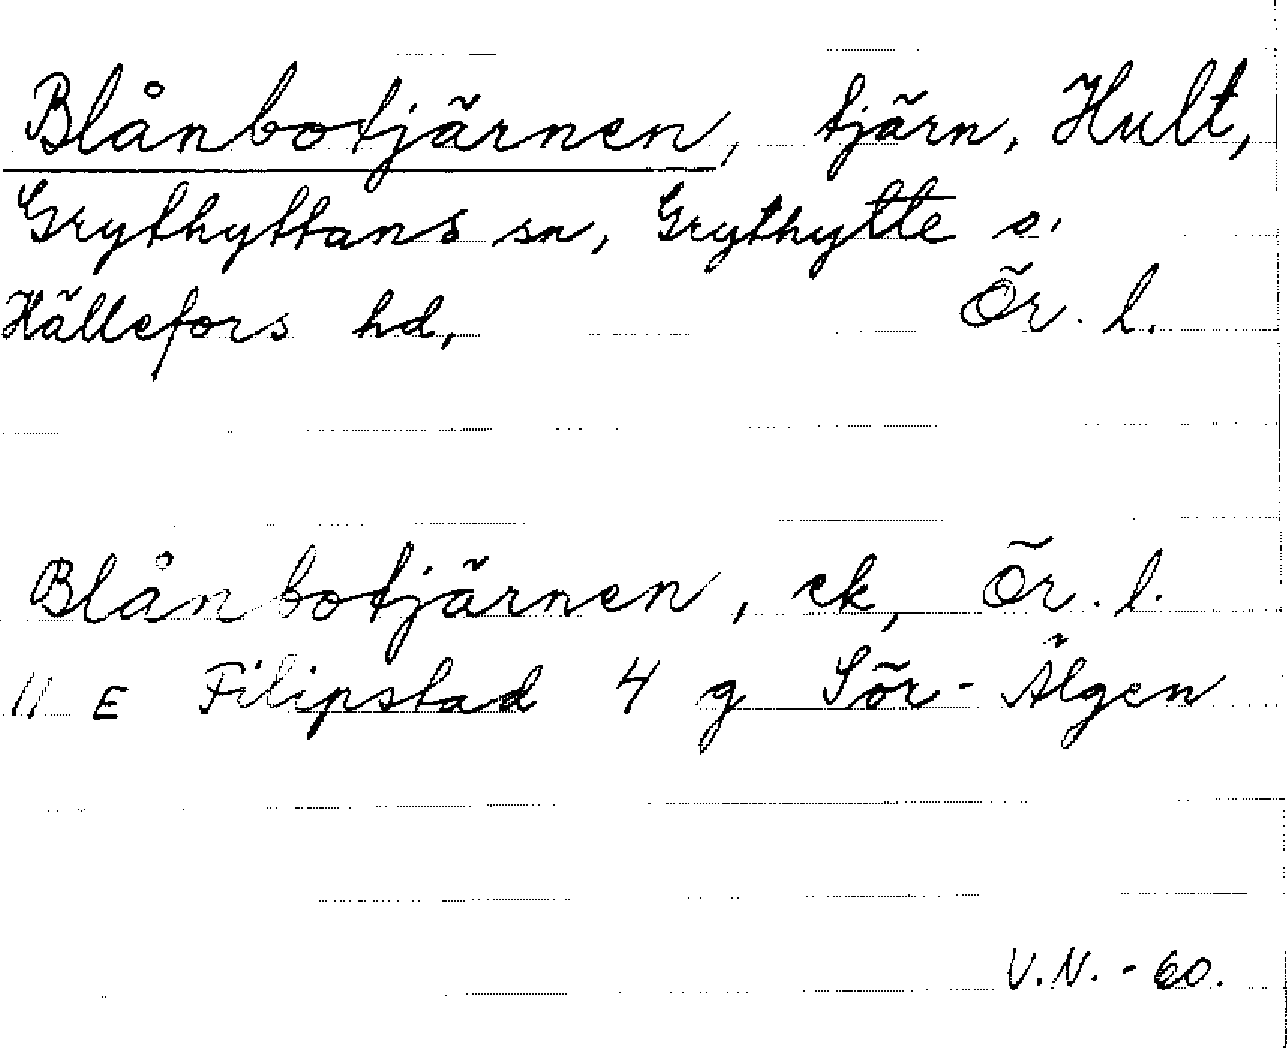 Blånbotjärnen, tjärn, Hult,
Grythyttans sn, Grythytte o.
Hällefors hd, Ör. l.
Blånbotjärnen, ek, Ör. l.
11 E Filipstad 4 g Sör-Älgen
V.N. - 60.